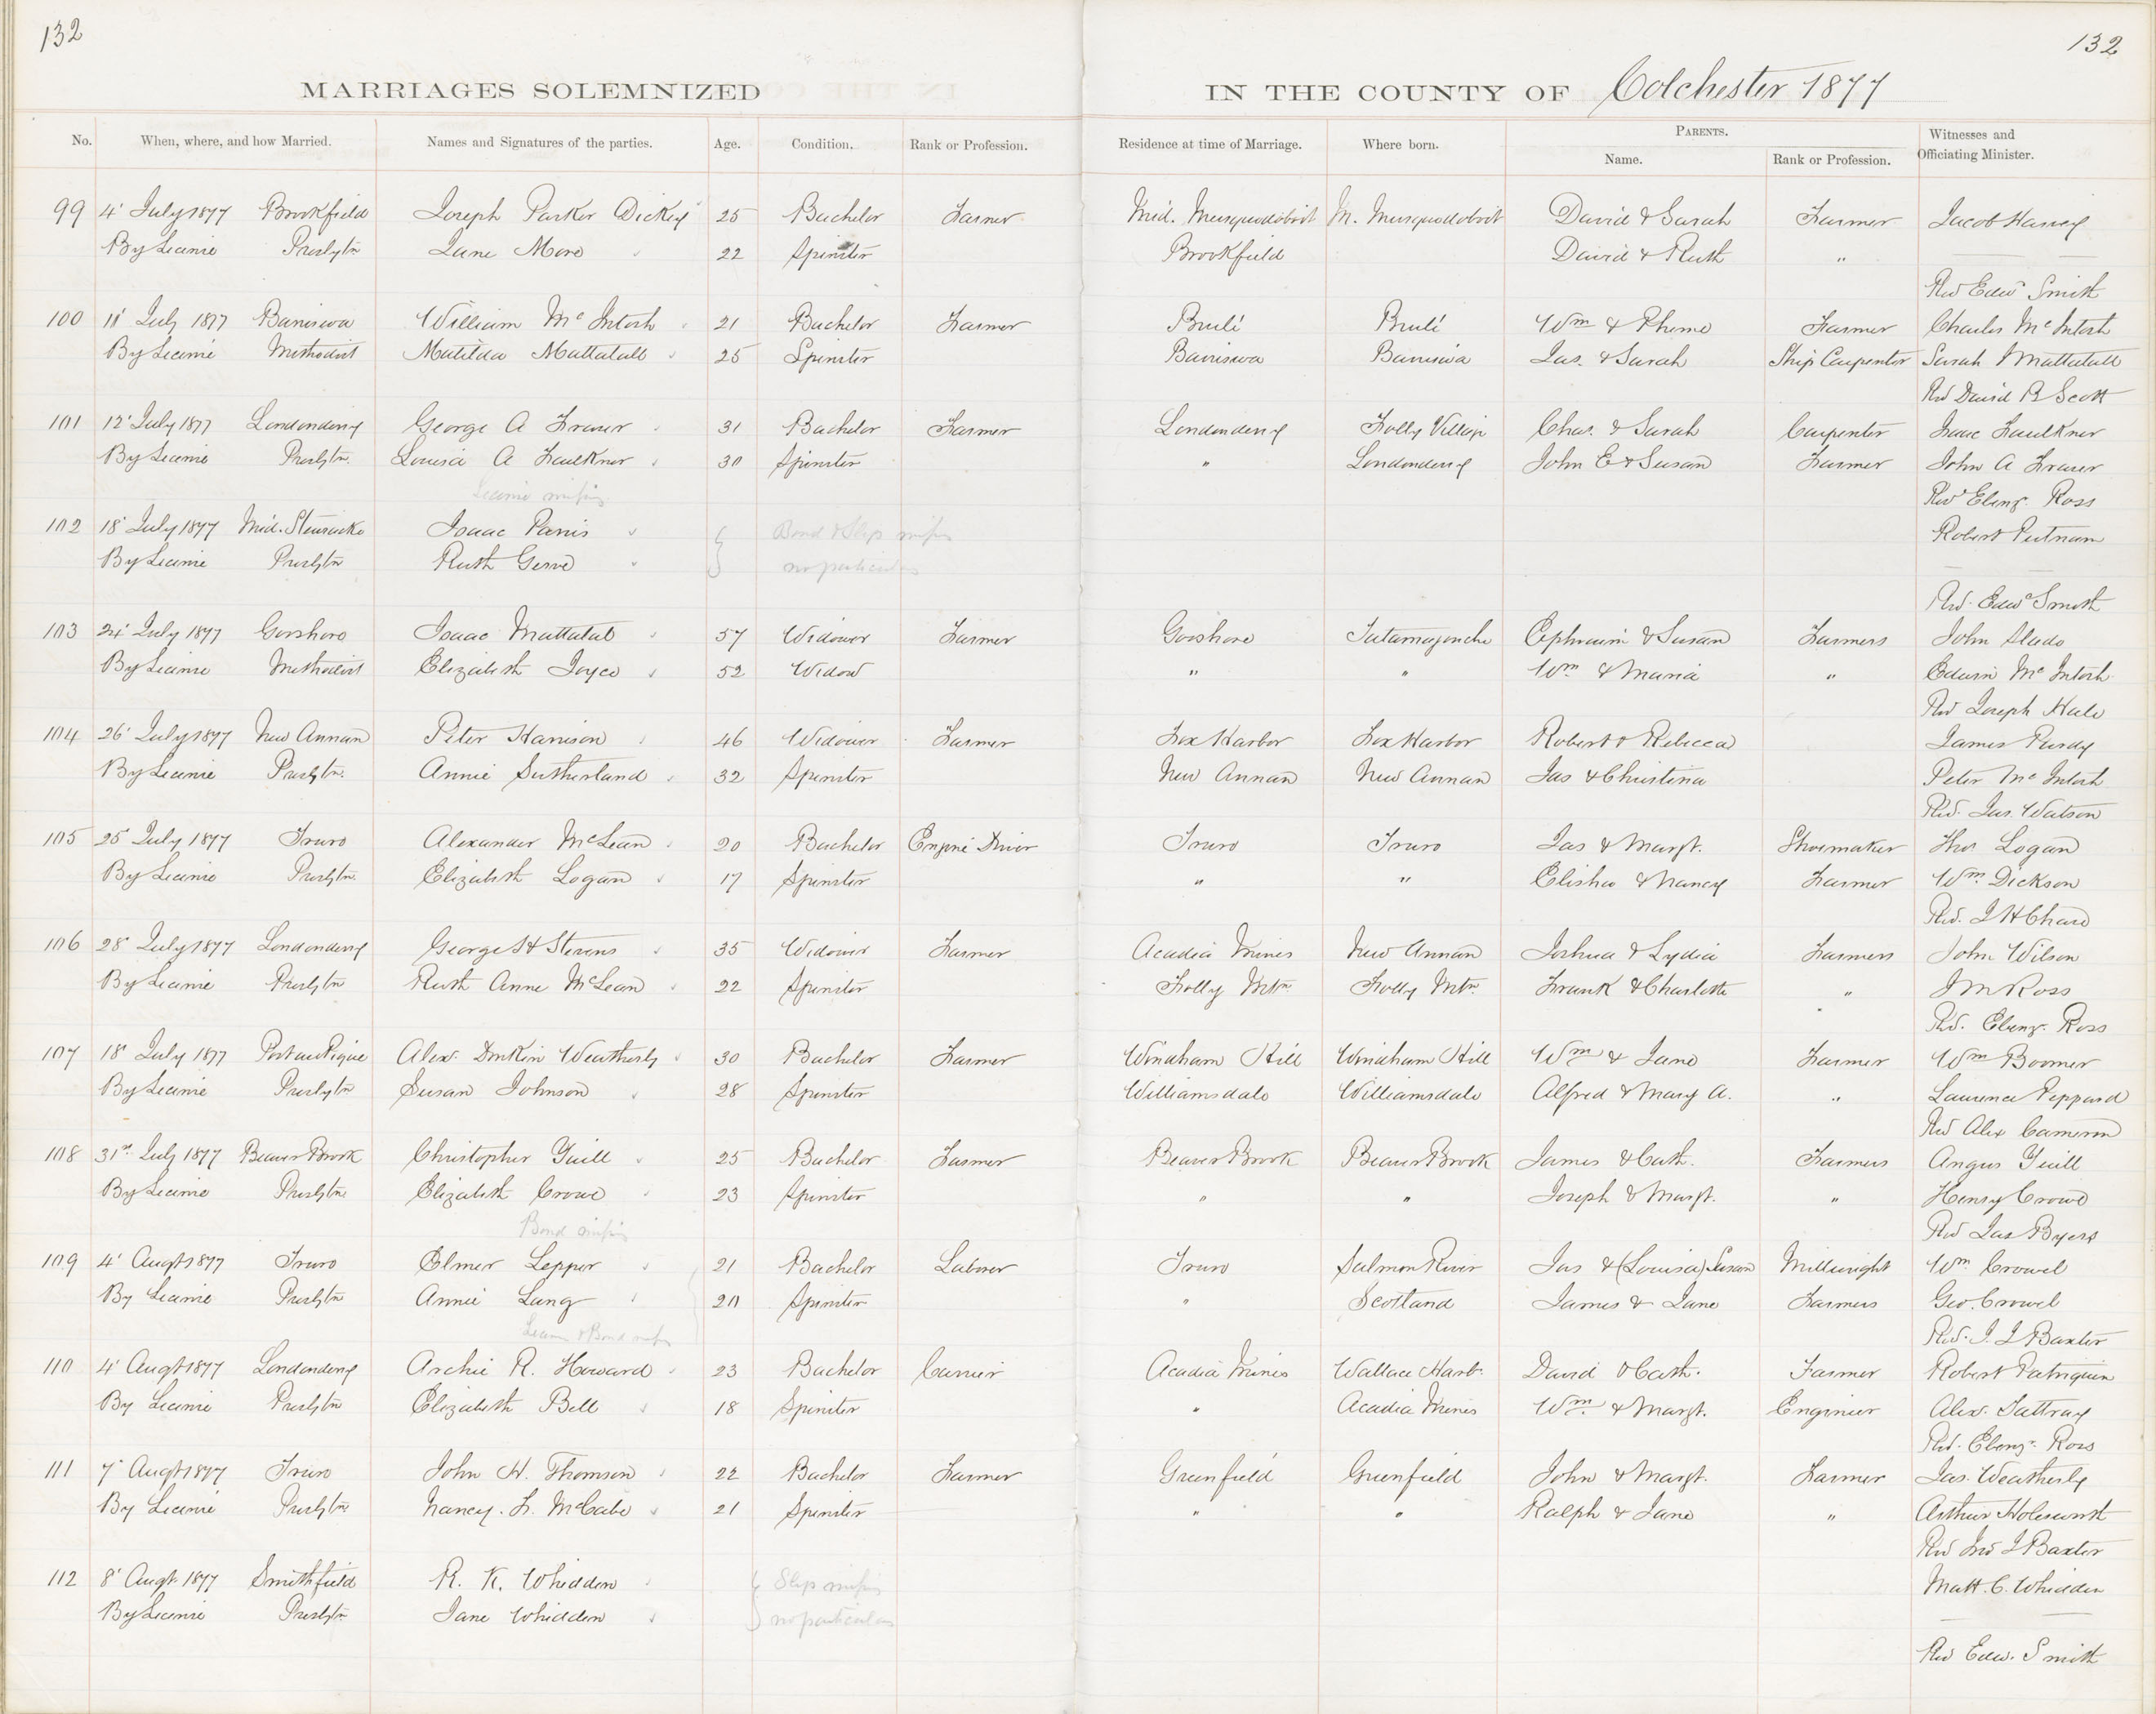 132
132
MARRIAGES SOLEMNIZED IN THE COUNTY OF Colchester 1877
No. When, where, and how Married. Names and Signatures of the parties. Age. Condition. Rank or Profession. Residence at time of Marriage. Where born. PARENTS. Name. Rank or Profession. Witnesses and Officiating Minister.
99 4' July 1877 Brookfield Joseph Parker Dickey 25 Bachelor Farmer Mid. Musquodoboit M. Musquodoboit David & Sarah Farmer Jacob
By License Presbytn Jane More 22 Spinster Brookfield David & Ruth "
Rev Edwd Smith
100 11' July 1877 William McIntosh 21 Bachelor Farmer Brulé Brulé Wm & Pheme Farmer Charles McIntosh
By License Methodist Matilda Mattatall 25 Spinster Jas. & Sarah Ship Carpenter Sarah Mattatall
Rev David B Scott
101 12' July 1877 Londonderry George A Fraser 31 Bachelor Farmer Londonderry Folly Village Chas. & Sarah Carpenter Isaac Faulkner
By License Presbytn. Louisa A Faulkner 30 Spinster " Londonderry John E & Susan Farmer John A Fraser
License missing Revd Ebenzr. Ross
102 18' July 1877 Mid. Stewiacke Isaac Robert Putnam
Bond & Slip missing
By License Presbytn Ruth
no particulars
Rev. Edwd Smith
103 24' July 1877 Isaac Mattatal 57 Widower Farmer Tatamagouche Ephraim & Susan Farmers John Slade
By License Methodist Elizabeth Joyce 52 Widow " " Wm & Maria " Edwin McIntosh
Rev Joseph Hale
104 26' July 1877 New Annan Peter Harrison 46 Widower Farmer Fox Harbor Fox Harbor Robert & Rebecca James Purdy
By License Presbytn. Annie Sutherland 32 Spinster New Annan New Annan Jas & Christina Peter McIntosh
Rev. Jas. Watson
105 25' July 1877 Truro Alexander McLean 20 Bachelor Engine Driver Truro Truro Jas & Margt. Shoemaker Thos Logan
By License Presbytn. Elizabeth Logan 17 Spinster " " Elisha & Nancy Farmer Wm. Dickson
Rev. J H Chase
106 28' July 1877 Londonderry George H Stevens 35 Widower Farmer Acadia Mines New Annan Joshua & Lydia Farmers John Wilson
By License Presbytn Ruth Anne McLean 22 Spinster Folly Mtn. Folly Mtn. Frank & Charlotte " J M Ross
Rev. Ebenzr. Ross
107 18' July 1877 Portaupique Alex. Weatherby 30 Bachelor Farmer Windham Hill Windham Hill Wm & Jane Farmer Wm Boomer
By License Presbytn Susan Johnson 28 Spinster Williamsdale Williamsdale Alfred & Mary A. " Laurence Peppard
Rev Alex Cameron
108 31st July 1877 Beaver Brook Christopher Yuill 25 Bachelor Farmer Beaver Brook Beaver Brook James & Cath. Farmers Angus Yuill
By License Presbytn. Elizabeth Crowe 23 Spinster " " Joseph & Margt. " Henry Crowe
Bond missing Rev Jas Byers
109 4' Augt 1877 Truro Elmer Lepper 21 Bachelor Laborer Truro Salmon River Jas & (Louisa) Susan Millwright Wm. Crowel
By License Presbytn Annie Lang 20 Spinster " Scotland James & Jane Farmers Geo. Crowel
License & Bond missing Rev. J. I Baxter
110 4' Augt 1877 Londonderry Archie R. Howard 23 Bachelor Acadia Mines Wallace Harb. David & Cath. Farmer Robert Patriquin
By License Presbytn Elizabeth Bell 18 Spinster " Acadia Mines Wm. & Margt. Engineer Alex.
Rev. Ebenzr. Ross
111 7' Augt 1877 Truro John H. Thomson 22 Bachelor Farmer Greenfield Greenfield John & Margt. Farmer Jas. Weatherby
By License Presbytn Nancy. F. McCabe 21 Spinster " " Ralph & Jane " Arthur
Rev Jno I Baxter
112 8' Augt. 1877 Smithfield R. K. Whidden Slip missing Matt. C. Whidden
By License Presbytn Jane Whidden no particulars
Rev Edw. Smith